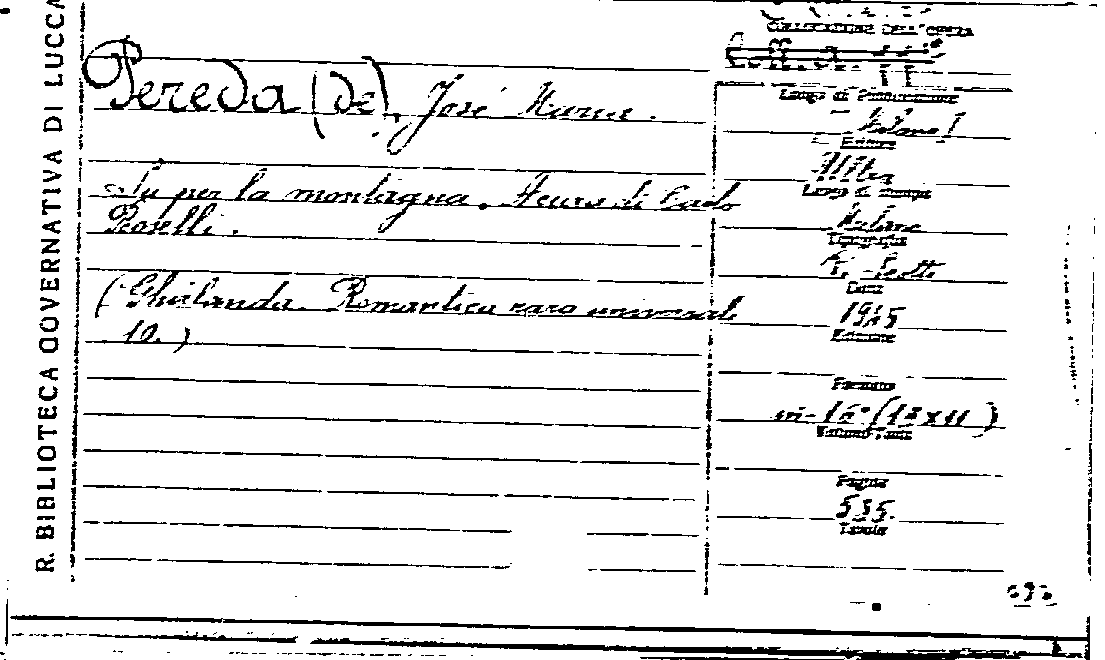 R. BIBLIOTECA GOVERNATIVA DI LUCCA
COLLOCAZIONE DELL'OPERA
Pereda (De), José Maria.
Su per la montagna. A cura di Carlo
Boselli.
(Ghirlanda. Romantica rara universale
10.)
Luogo di Pubblicazione
Milano
Editore
Alpes
Luogo di stampa
Milano
Tipografia
Data
1925
Volume
Formato
in-16° (
Pagine
535.
Tavole